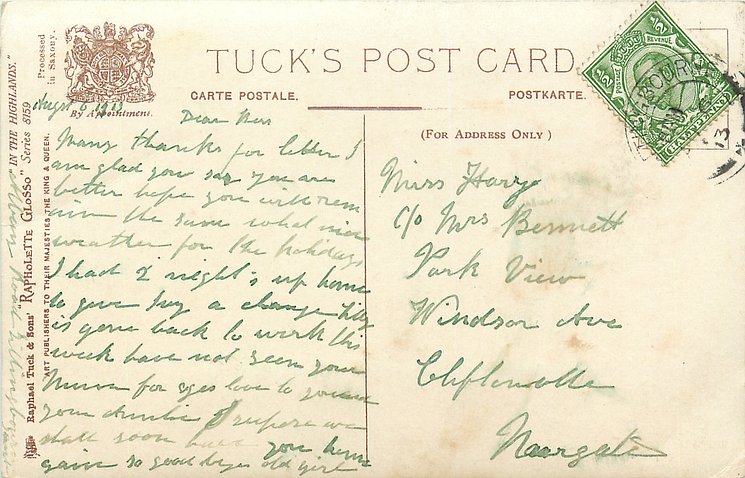 TUCK'S POST CARD
CARTE POSTALE. POSTKARTE.
By Appointment.
(FOR ADDRESS ONLY)
Processed in Saxony.
Raphael Tuck & Sons' "RAPHOLETTE GLOSSO" Series 8159 "IN THE HIGHLANDS."
ART PUBLISHERS TO THEIR MAJESTIES THE KING & QUEEN.
POSTAGE REVENUE
HALFPENNY
Augst 6 1913
Dear
Many thanks for letter I
am glad you say you are
better hope you will rem
ain the same what nice
weather for the holidays
I had 2 night's up home
to give a change Lilly
is gone back to work this
week have not seen your
Mum for ages love to
your Auntie I suppose we
shall soon have you home
again so good bye old girl
Road
Miss Hary
C/o Mrs Bennett
Park View
Windsor Ave
Cliftonville
Margate